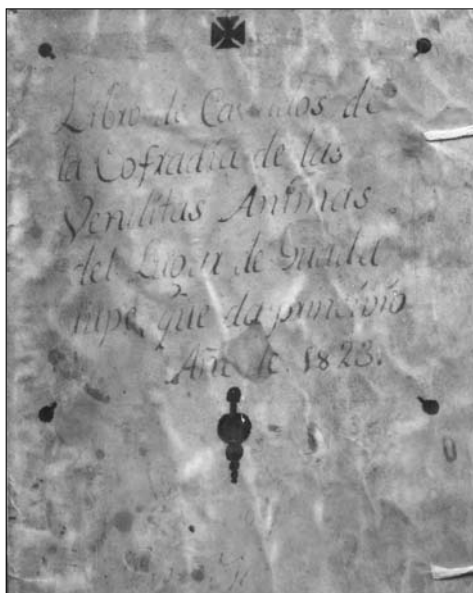 Libro de Cavildos de
la Cofradia de las
Venditas Animas
del Lugar de Guada
lupe, que da principio
Año de 1823.